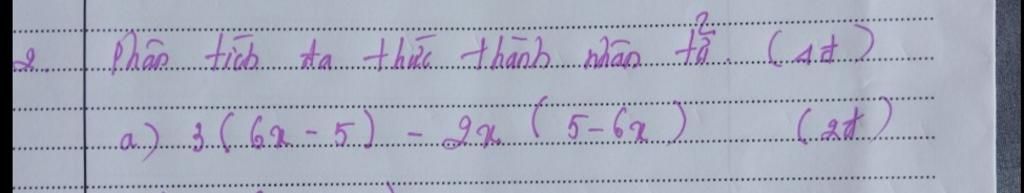 2. Phân tích đa thức thành nhân tử. (4đ)
a) 3(6x - 5) - 2x (5-6x) (2đ)